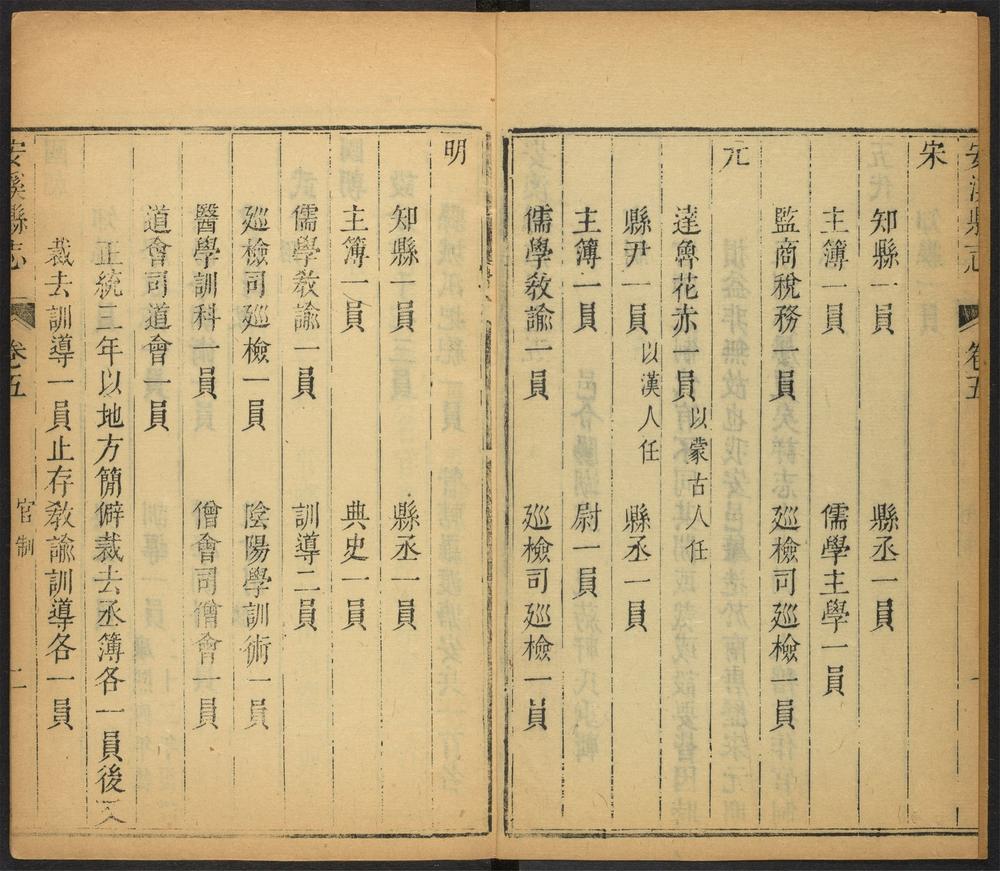 安溪縣志 卷五
宋
知縣一員 縣丞一員
主簿一員 儒學主學一員
監商稅務一員 廵檢司廵檢一員
元
達魯花赤一員以蒙古人任
縣尹一員以漢人任 縣丞一員
主簿一員 尉一員
儒學敎諭一員 廵檢司廵檢一員
明
知縣一員 縣丞一員
主簿一員 典史一員
儒學敎諭一員 訓導二員
廵檢司廵檢一員 陰陽學訓術一員
醫學訓科一員 僧會司僧會一員
道會司道會一員
正統三年以地方簡僻裁去丞簿各一員後又
裁去訓導一員止存敎諭訓導各一員
安溪縣志 卷五 官制 二